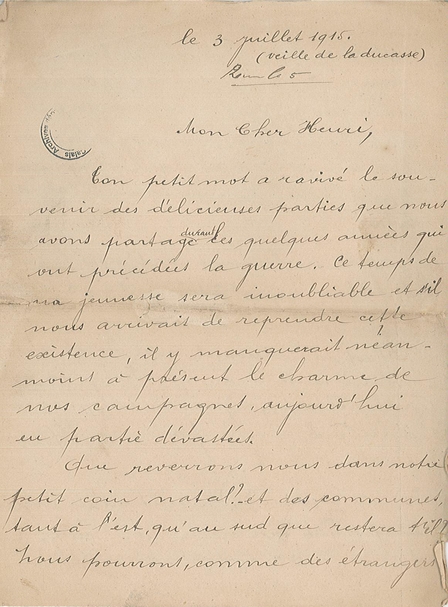 le 3 juillet 1915.
(veille de la ducasse)
Mon Cher Henri,
Ton petit mot a ravivé le sou-
venir des délicieuses parties que nous
avons partagé durant les quelques années qui
ont précédées la guerre. Ce temps de
ma jeunesse sera inoubliable et s'il
nous arrivait de reprendre cette
existence, il y manquerait néan-
moins à présent le charme de
nos campagnes, aujourd'hui
en partie dévastées.
Que reverrons nous dans notre
petit coin natal? et des communes,
tant à l'est, qu'au sud que restera t'il?
Nous pourrons, comme des étrangers